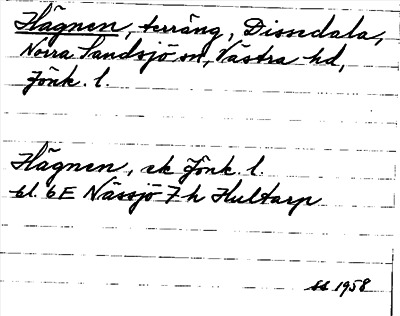 Hägnen, terräng, Dissedala,
Norra Sandsjö sn, Västra hd,
Jönk. l.
Hägnen, ek Jönk. l.
bl. 6E Nässjö 7h Hultarp
ss 1958